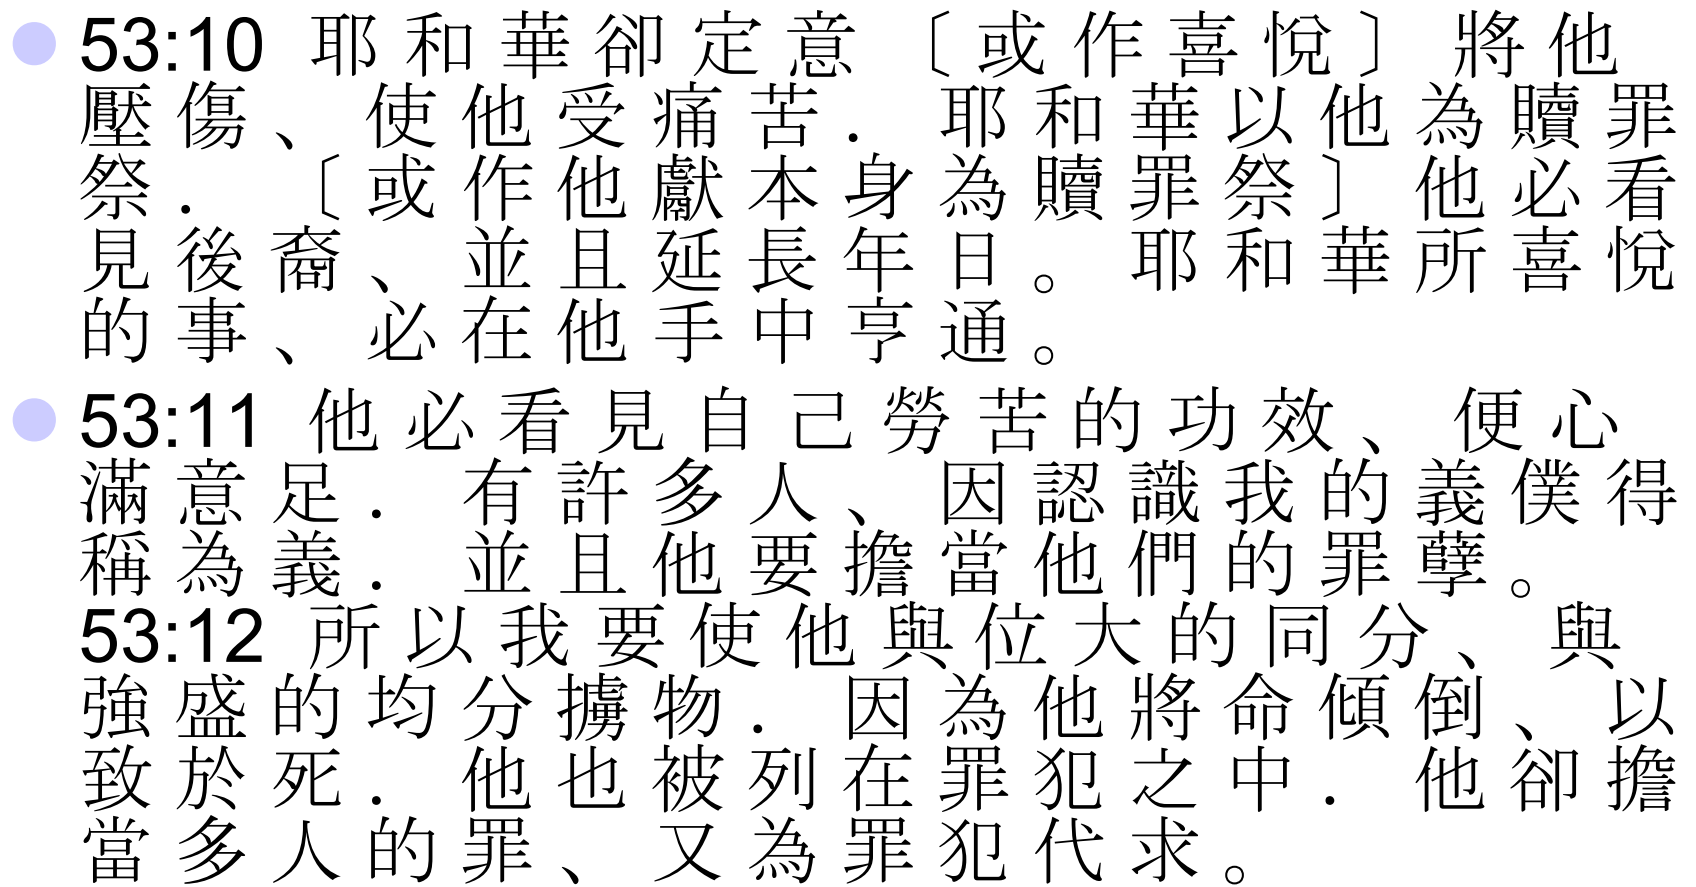 53:10 耶和華卻定意〔或作喜悅〕將他
壓傷、使他受痛苦．耶和華以他為贖罪
祭．〔或作他獻本身為贖罪祭〕他必看
見後裔、並且延長年日。耶和華所喜悅
的事、必在他手中亨通。
53:11 他必看見自己勞苦的功效、便心
滿意足．有許多人、因認識我的義僕得
稱為義．並且他要擔當他們的罪孽。
53:12 所以我要使他與位大的同分、與
強盛的均分擄物．因為他將命傾倒、以
致於死．他也被列在罪犯之中．他卻擔
當多人的罪、又為罪犯代求。